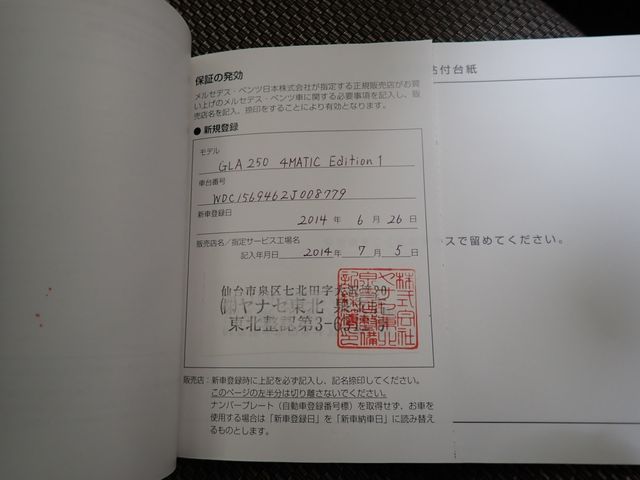 保証の発効
メルセデス・ベンツ日本株式会社が指定する正規販売店がお買
い上げのメルセデス・ベンツ車に関する必要事項を記入し、販
売店名を記入、捺印をすることにより有効となります。
● 新規登録
モデル
GLA 250 4MATIC Edition 1
車台番号
WDC1569462J008779
新車登録日
2014 年 6 月 26 日
販売店名／指定サービス工場名
記入年月日 2014 年 7 月 5 日
仙台市泉区七北田字
㈱ヤナセ東北
東北整認第3-6
株式会社
販売店：新車登録時に上記を必ず記入し、記名捺印してください。
このページの左半分は切り離さないでください。
ナンバープレート（自動車登録番号標）を取得せず、お車を
使用する場合は「新車登録日」を「新車納車日」に読み替え
るものとします。
付台紙
スで留めてください。